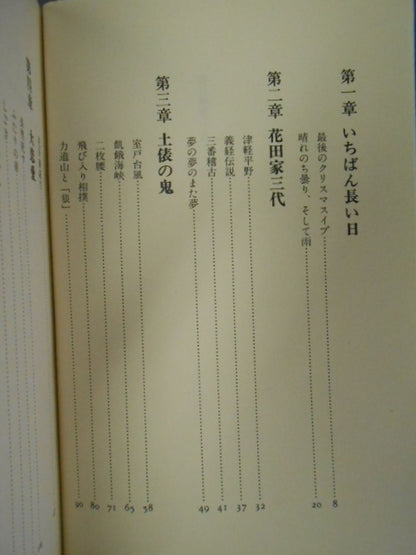 第一章 いちばん長い日
最後のクリスマスイブ 8
晴れのち曇り、そして雨 20
第二章 花田家三代
津軽平野 32
義経伝説 37
三番稽古 41
夢の夢のまた夢 49
第三章 土俵の鬼
室戸台風 58
飢餓海峡 65
二枚腰 71
飛び入り相撲 80
力道山と「狼」 90